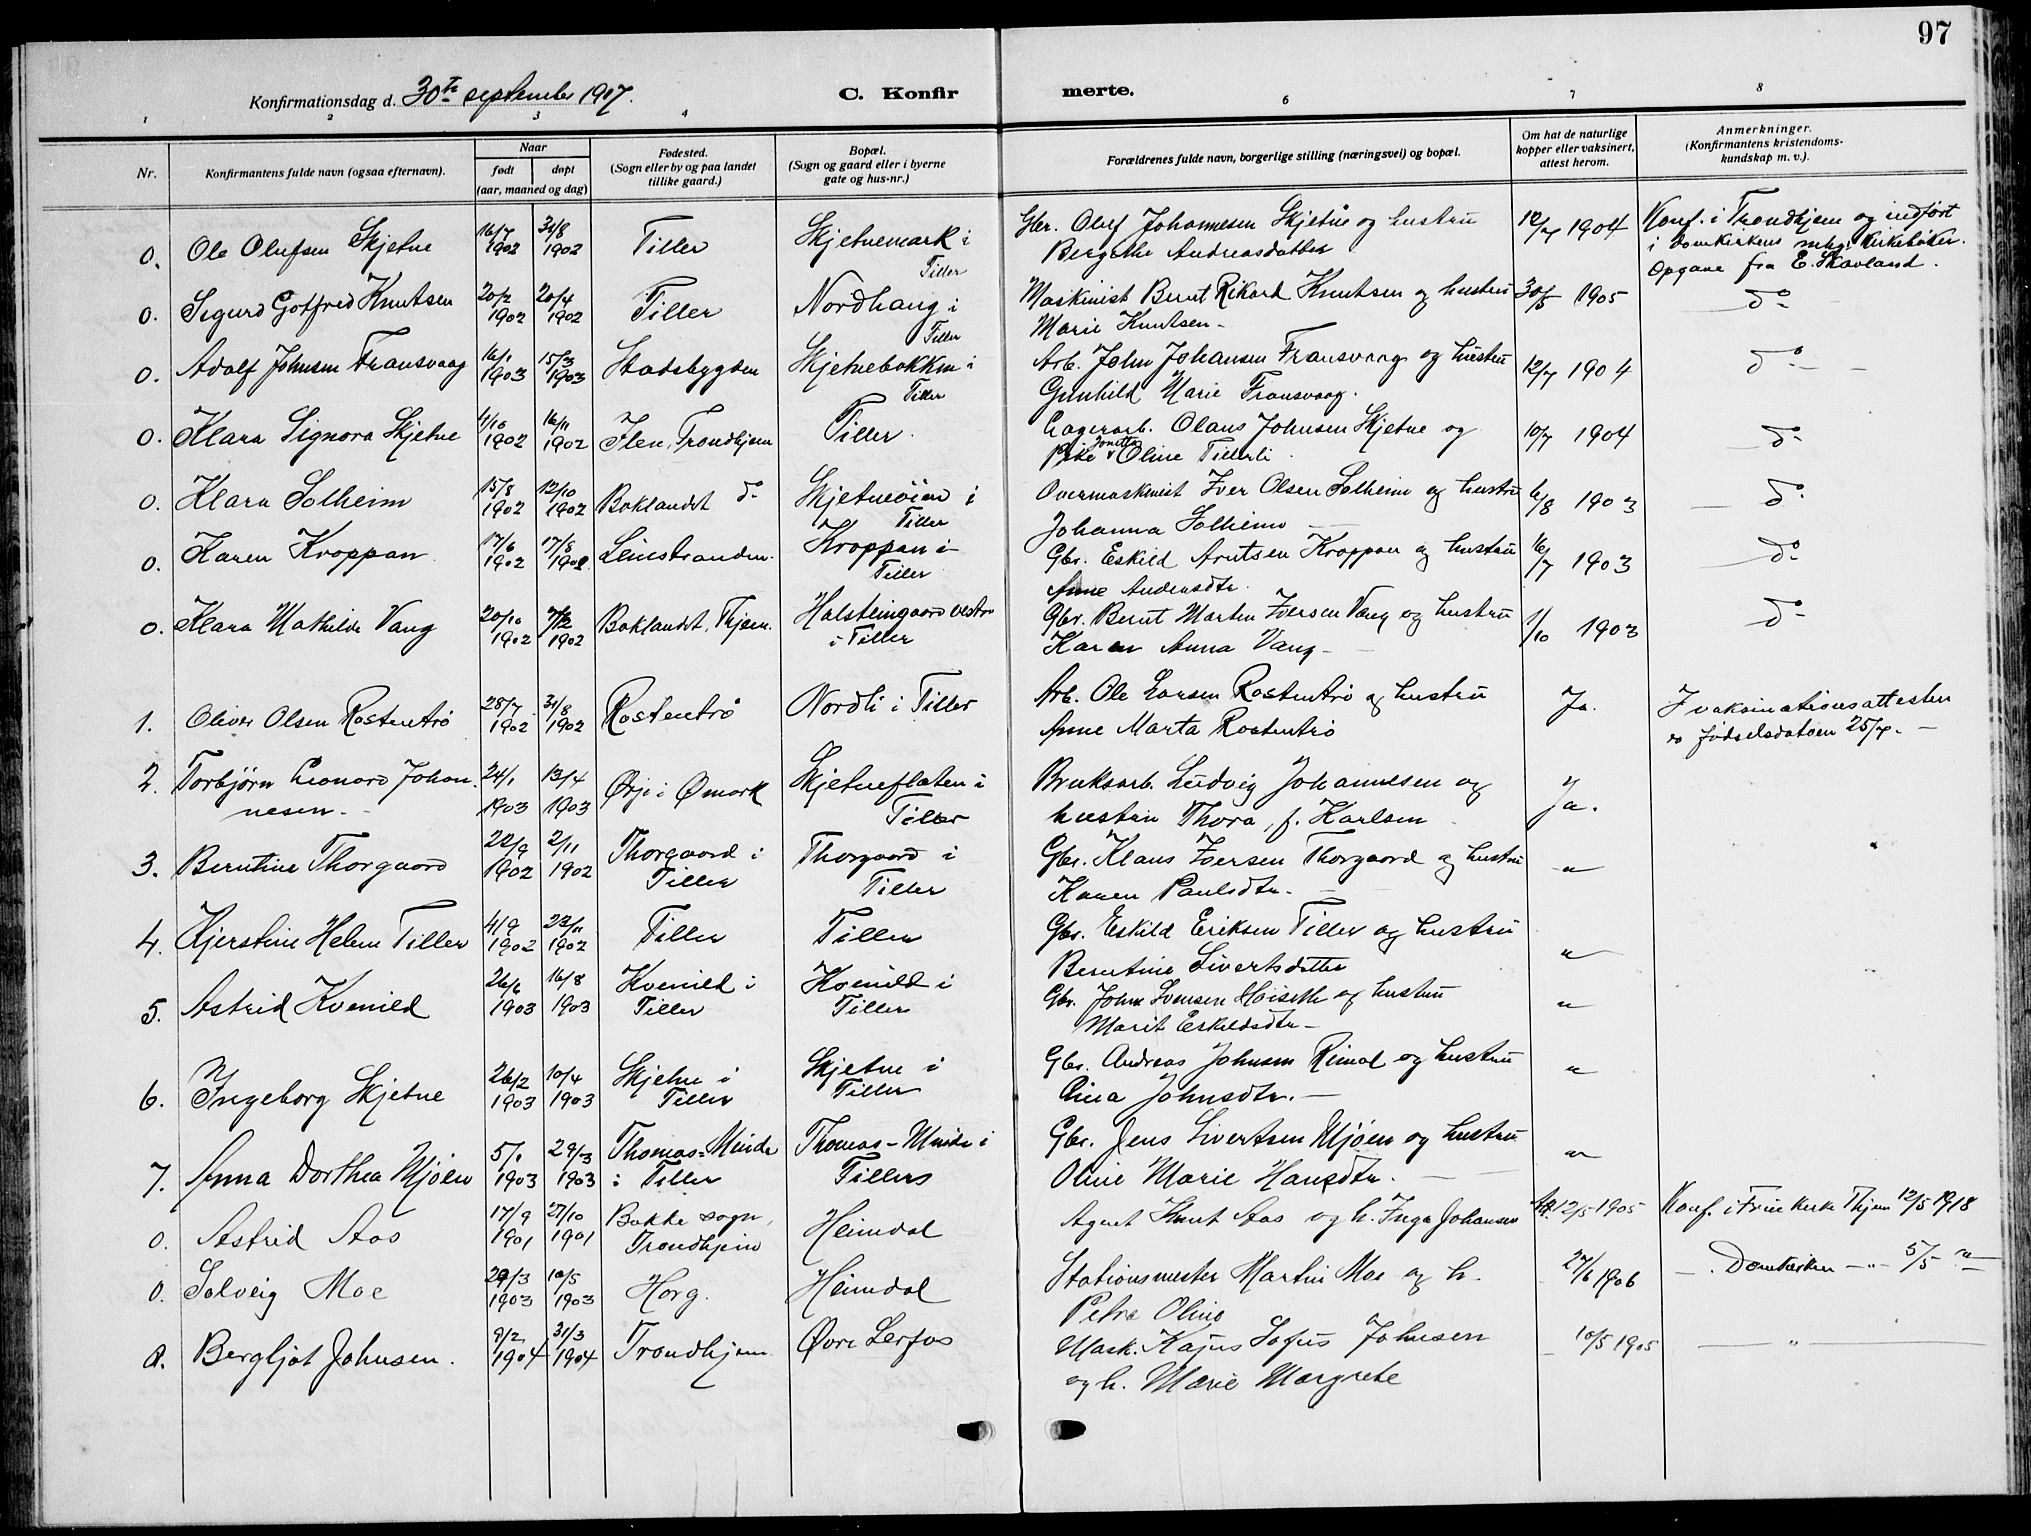 97
Konfirmationsdag d. 30te september 1907.
C. Konfir merte.
1 2 3 4 6 7 8
Nr.
Konfirmantens fulde navn (ogsaa efternavn).
Naar
født døpt
(aar, maaned og dag)
Fødested.
(Sogn eller by og paa landet
tillike gaard.)
Bopæl.
(Sogn og gaard eller i byerne
gate og hus-nr.)
Forældrenes fulde navn, borgerlige stilling (næringsvei) og bopæl.
Om hat de naturlige
kopper eller vaksinert,
attest herom.
Anmerkninger.
(Konfirmantens kristendoms-
kundskap m. v.).
0. Ole Olufsen Skjetne 16/7 1902 31/8 1902 Tiller Skjetnemark i Tiller Gbr. Oluf Johannesen Skjetne og hustru Bergithe Andreasdatter 12/7 1904 Konf. i Trondhjem og indført i Domkerkens mtg. kirkebøker. Opgave fra E. Skavland.
0. Sigurd Gotfred Knutsen 20/2 1902 20/4 1902 Tiller Nordhaug i Tiller Maskinist Bernt Rikard Knutsen og hustru Marie Knutsen - 30/5 1905 do
0. Adolf Johnsen Fransvaag 16/1 1903 15/3 1903 Stadsbygden Skjetnebakken i Tiller Arb. John Johansen Fransvaag og hustru Gunhild Marie Fransvaag. 12/7 1904 do
0. Klara Signora Skjetne 4/10 1902 16/11 1902 Ilen, Trondhjem Tiller. Lagerarb. Olaus Johnsen Skjetne og Pike Jonette Oline Tillerli. 10/7 1904 do
0. Klara Solheim 15/8 1902 12/10 1902 Baklandet do Skjetneøien i Tiller Overmaskinist Iver Olsen Solheim og hustru Johanna Solheim 6/8 1903 do
0. Karen Kroppan 17/6 1902 17/8 1902 Leinstranden. Kroppan i Tiller Gbr. Eskild Arntsen Kroppan og hustru Anne Andersdtr. 16/7 1903 do
0. Klara Mathilde Vang 20/10 1902 7/12 1902 Baklandet, Thjem. Halsteingaard vestre i Tiller Gbr. Bernt Martin Iversen Vang og hustru Karen Anna Vang - 1/10 1903 do
1. Oliver Olsen Rostentrø 28/7 1902 31/8 1902 Rostentrø Nordli i Tiller Arb. Ole Larsen Rostentrø og hustru Anne Marta Rostentrø Ja. I vaksinationsattesten er fødselsdatoen 25/7. -
2. Torbjørn Leonard Johannesen. - 24/1 1903 13/4 1903 Ørje i Ømark Skjetneflaten i Tiller Bruksarb. Ludvig Johannesen og hustru Thora, f. Karlsen Ja.
3. Berntine Thorgaard 22/9 1902 2/11 1902 Thorgaard i Tiller Thorgaard i Tiller Gbr. Klaus Iversen Thorgaard og hustru Karen Paulsdtr. - "
4. Kjerstine Helene Tiller 4/9 1902 23/11 1902 Tiller Tiller Gbr. Eskild Eriksen Tiller og hustru Berntine Sivertsdatter "
5. Astrid Kvenild 26/6 1903 16/8 1903 Kvenild i Tiller Kvenild i Tiller Gbr. John Svensen Høiseth og hustru Marit Eskildsdtr - "
6. Ingeborg Skjetne 26/2 1903 10/4 1903 Skjetne i Tiller Skjetne i Tiller Gbr. Andreas Johnsen Rimol og hustru Lina Johnsdtr. - "
7. Anna Dorthea Mjøen 5/1 1903 29/3 1903 Thomas-Minde i Tiller Thomas-Minde i Tiller Gbr. Jens Sivertsen Mjøen og hustru Oline Marie Hansdtr. "
0. Astrid Aas 17/9 1901 27/10 1901 Bakke sogn, Trondhjem Heimdal Agent Knut Aas og h. Inga Johansen Att. 12/5 1905 Konf. i Frue Kirke Thjem 12/5 1918
0. Solveig Moe 29/3 1903 10/5 1903 Horg. Heimdal Stationsmester Martin Moe og h. Petra Oline 27/6 1906 - . Domkirken - " - 5/5 "
0. Bergljot Johnsen. 9/2 1904 31/3 1904 Trondhjem Øvre Lerfos Mask. Kajus Sofus Johnsen og h. Marie Margrete 10/5 1905 "